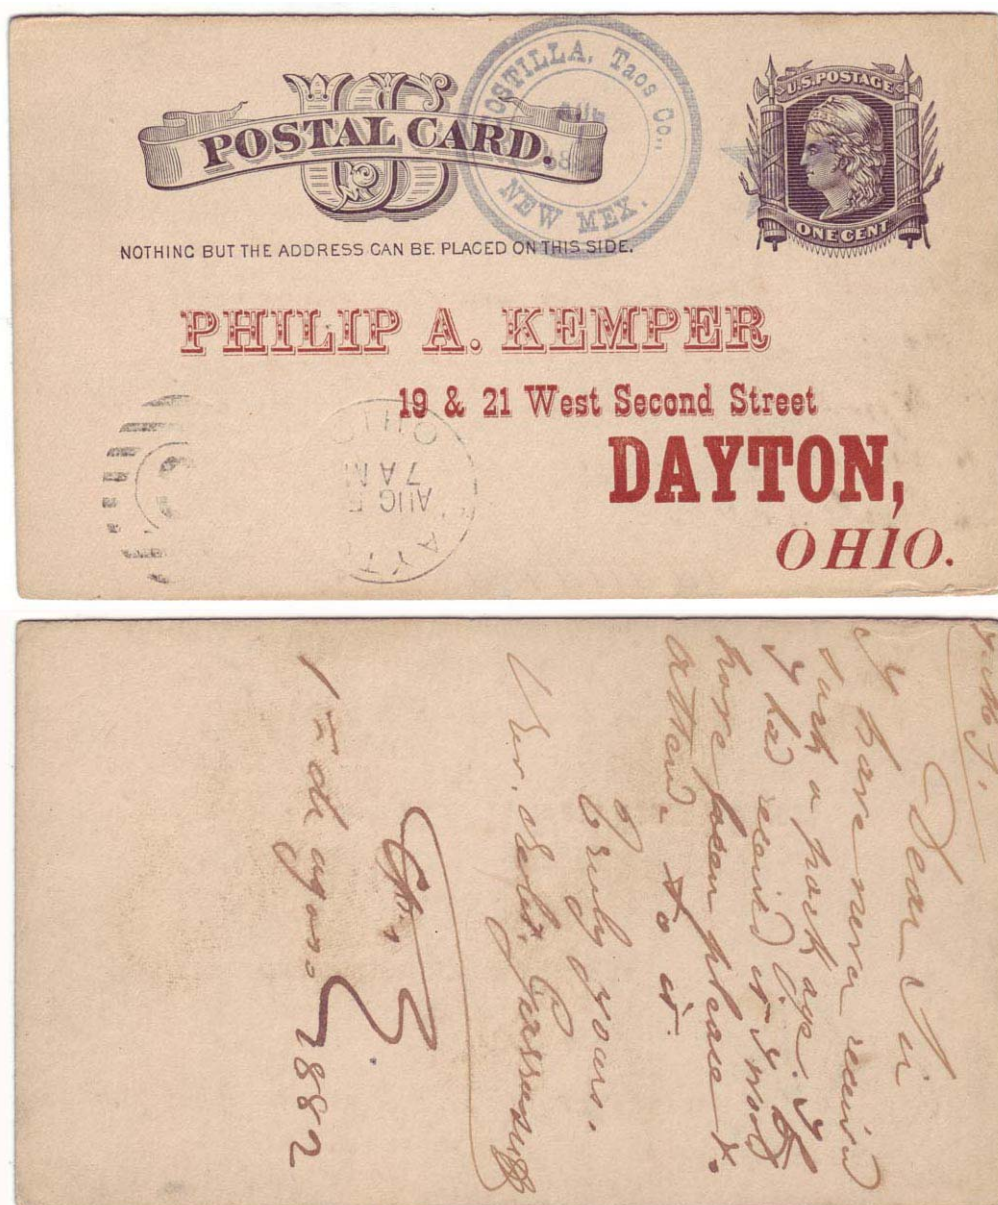 U.S. POSTAGE
ONE CENT
US
POSTAL CARD.
COSTILLA, Taos Co.,
NEW MEX.
NOTHING BUT THE ADDRESS CAN BE PLACED ON THIS SIDE.
PHILIP A. KEMPER
19 & 21 West Second Street
DAYTON,
OHIO.
OHIO
7 AM
AUG
Dear Sir
I have never received
such a package. If
I had received it I would
have been please
attend. to it.
Truly yours.
1882